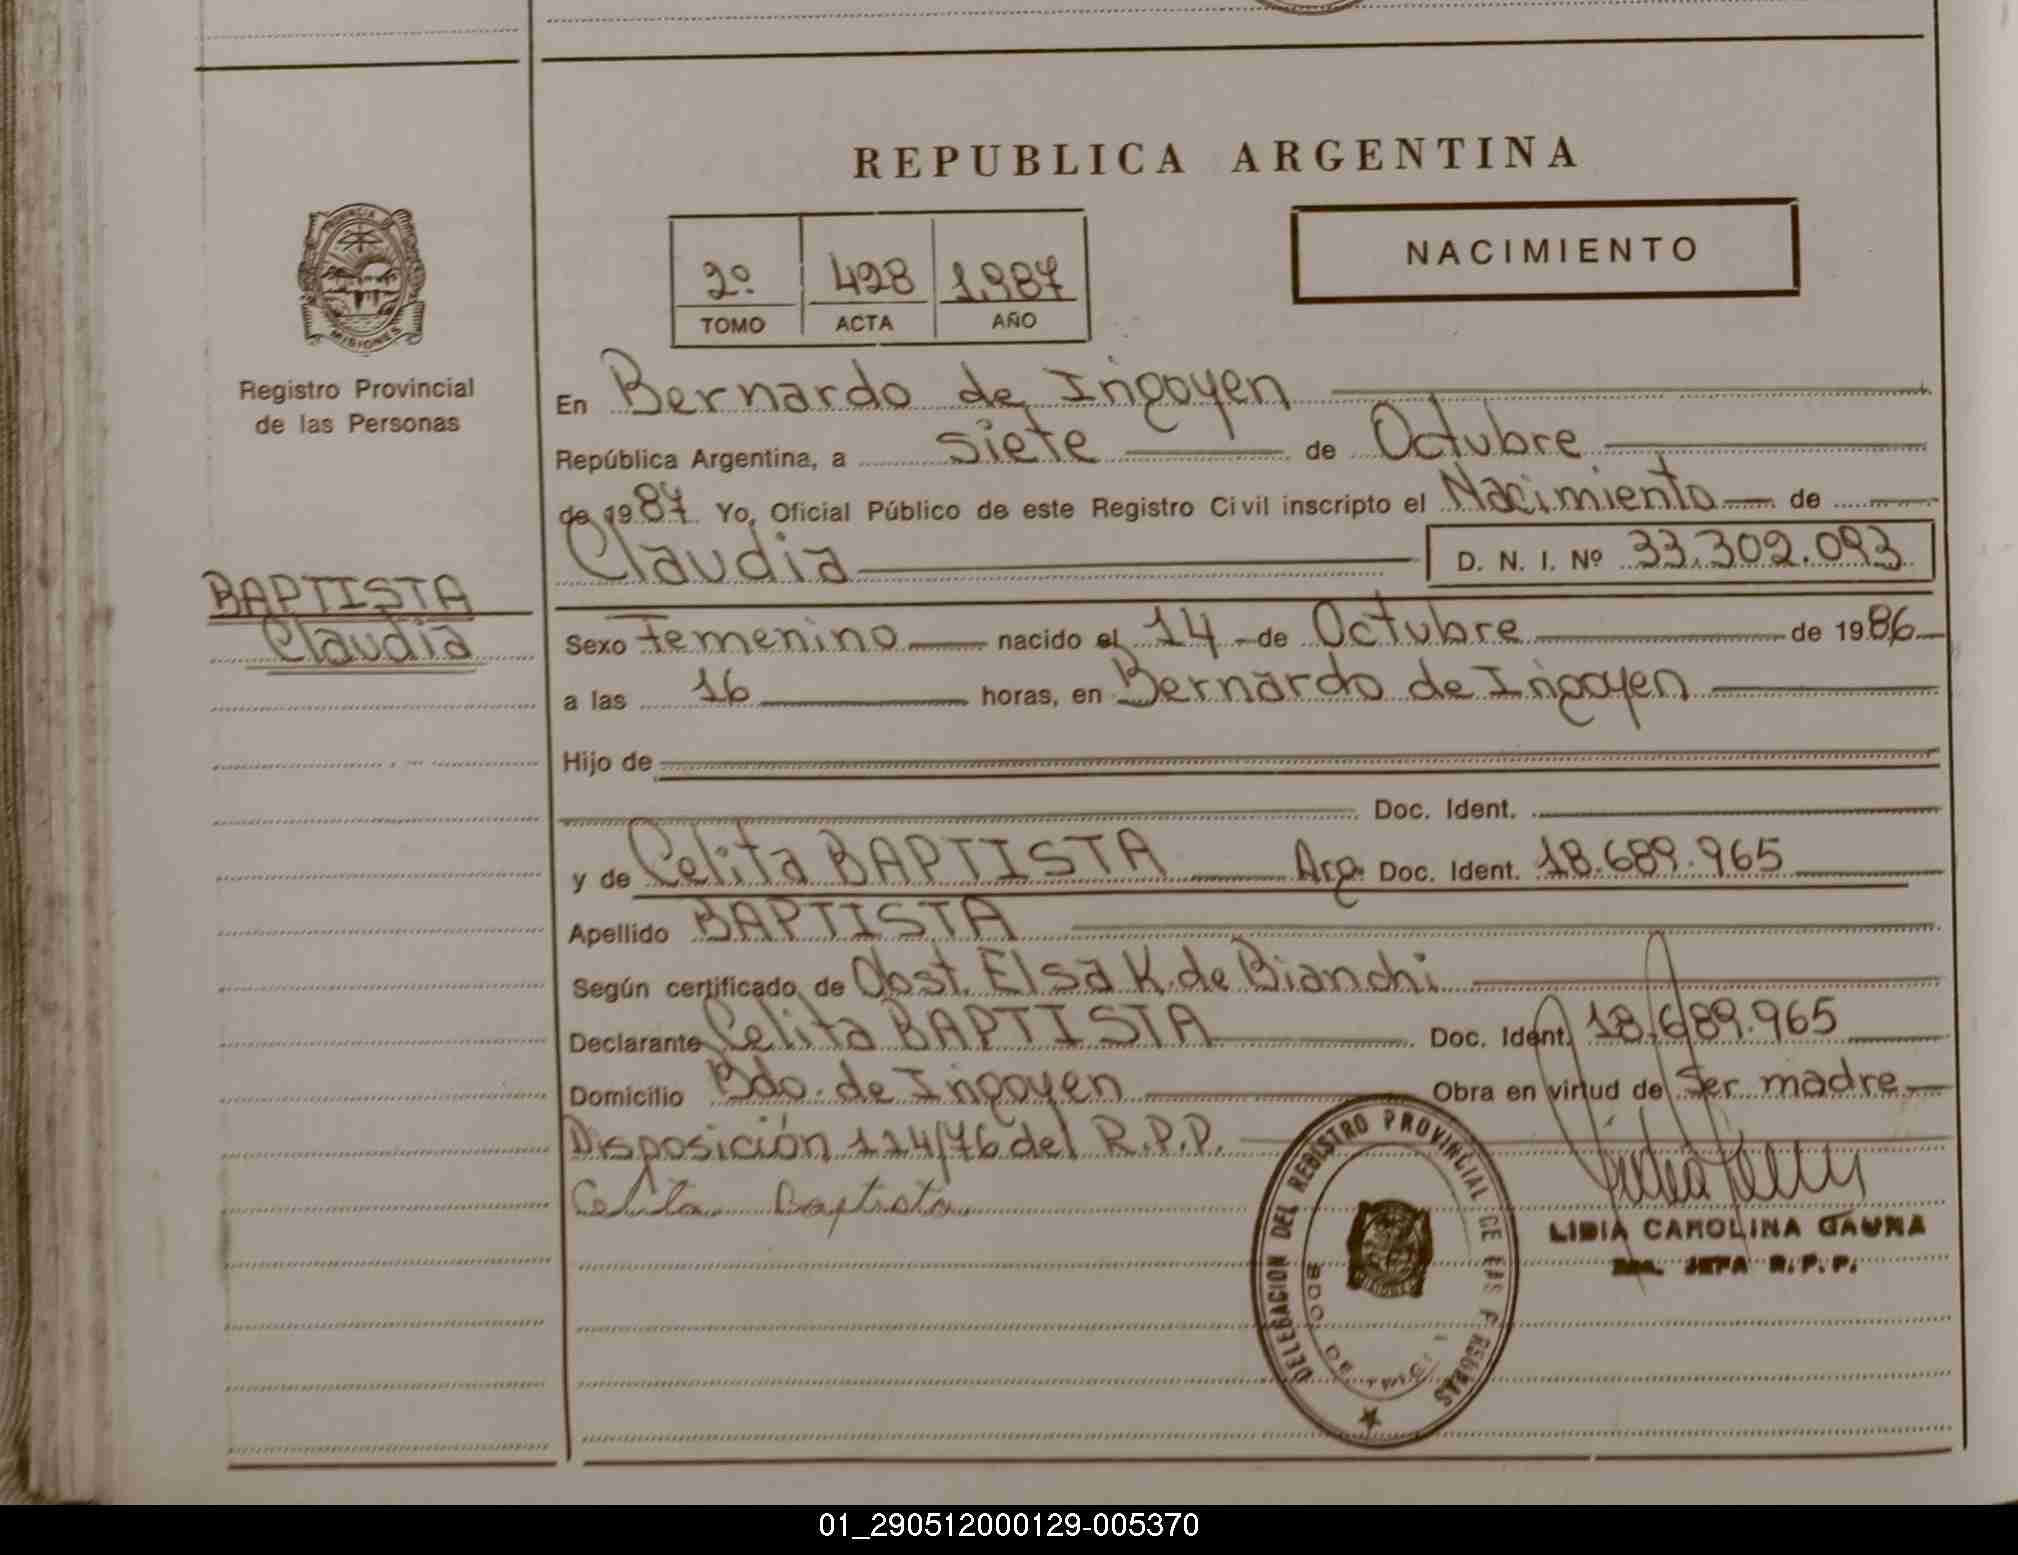 REPUBLICA ARGENTINA
PROVINCIA DE
MISIONES
Registro Provincial
de las Personas
BAPTISTA
Claudia
2º 428 1.987
TOMO ACTA AÑO
NACIMIENTO
En Bernardo de Irigoyen
República Argentina, a siete de Octubre
de 1987 Yo, Oficial Público de este Registro Civil inscripto el Nacimiento de
Claudia D. N. I. Nº 33.302.093
Sexo Femenino nacido el 14 de Octubre de 1986
a las 16 horas, en Bernardo de Irigoyen
Hijo de
Doc. Ident.
y de Celita BAPTISTA Arg. Doc. Ident. 18.689.965
Apellido BAPTISTA
Según certificado de Obst. Elsa K. de Bianchi
Declarante Celita BAPTISTA Doc. Ident. 18.689.965
Domicilio Bdo. de Irigoyen Obra en virtud de Ser madre
Disposición 114/76 del R.P.P.
Celita Baptista
DELEGACION DEL REGISTRO PROVINCIAL DE LAS PERSONAS
BDO. DE
LIDIA CAROLINA GAUNA
JEFA R.P.P.
01_290512000129-005370